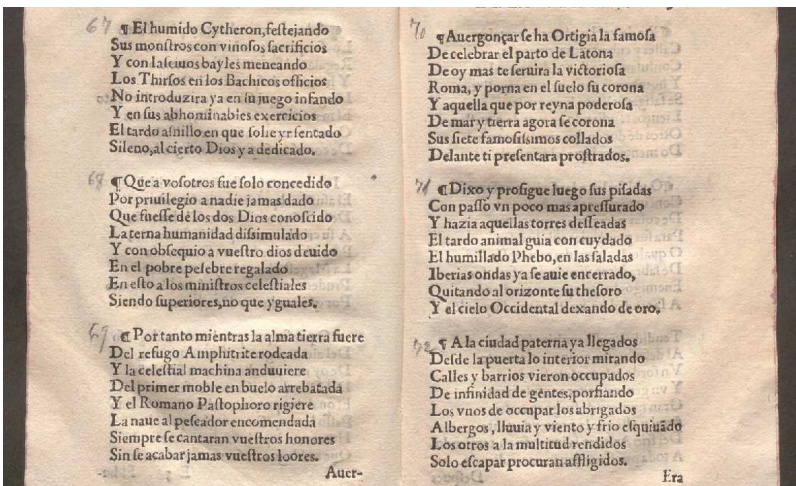 67 ¶ El humido Cytheron, festejando
Sus monstros con vinosos sacrificios
Y con lasciuos bayles meneando
Los Thirsos en los Bachicos officios
No introduzira ya en su juego infando
Y en sus abhominables exercicios
El tardo asnillo en que solie yr sentado
Sileno, al cierto Dios ya dedicado.
68 ¶ Que a vosotros fue solo concedido
Por priuilegio a nadie jamas dado
Que fuesse de los dos Dios conoscido
La terna humanidad dissimulado
Y con obsequio a vuestro dios deuido
En el pobre pesebre regalado
En esto a los ministros celestiales
Siendo superiores, no que yguales.
69 ¶ Por tanto mientras la alma tierra fuere
Del refugo Amphitrite rodeada
Y la celestial machina anduuiere
Del primer moble en buelo arrebatada
Y el Romano Pastophoro rigiere
La naue al pescador encomendada
Siempre se cantaran vuestros honores
Sin se acabar jamas vuestros loores.
Auer-
70 ¶ Auergonçar se ha Ortigia la famosa
De celebrar el parto de Latona
De oy mas te seruira la victoriosa
Roma, y porna en el suelo su corona
Y aquella que por reyna poderosa
De mar y tierra agora se corona
Sus siete famosissimos collados
Delante ti presentara prostrados.
71 ¶ Dixo y prosigue luego sus pisadas
Con passo vn poco mas apressurado
Y hazia aquellas torres desseadas
El tardo animal guia con cuydado
El humillado Phebo, en las saladas
Iberias ondas ya se auie encerrado,
Quitando al orizonte su thesoro
Y el cielo Occidental dexando de oro.
72 ¶ A la ciudad paterna ya llegados
Desde la puerta lo interior mirando
Calles y barrios vieron occupados
De infinidad de gentes, porfiando
Los vnos de occupar los abrigados
Albergos, lluuia y viento y frio esquiuãdo
Los otros a la multitud rendidos
Solo escapar procuran affligidos.
Era